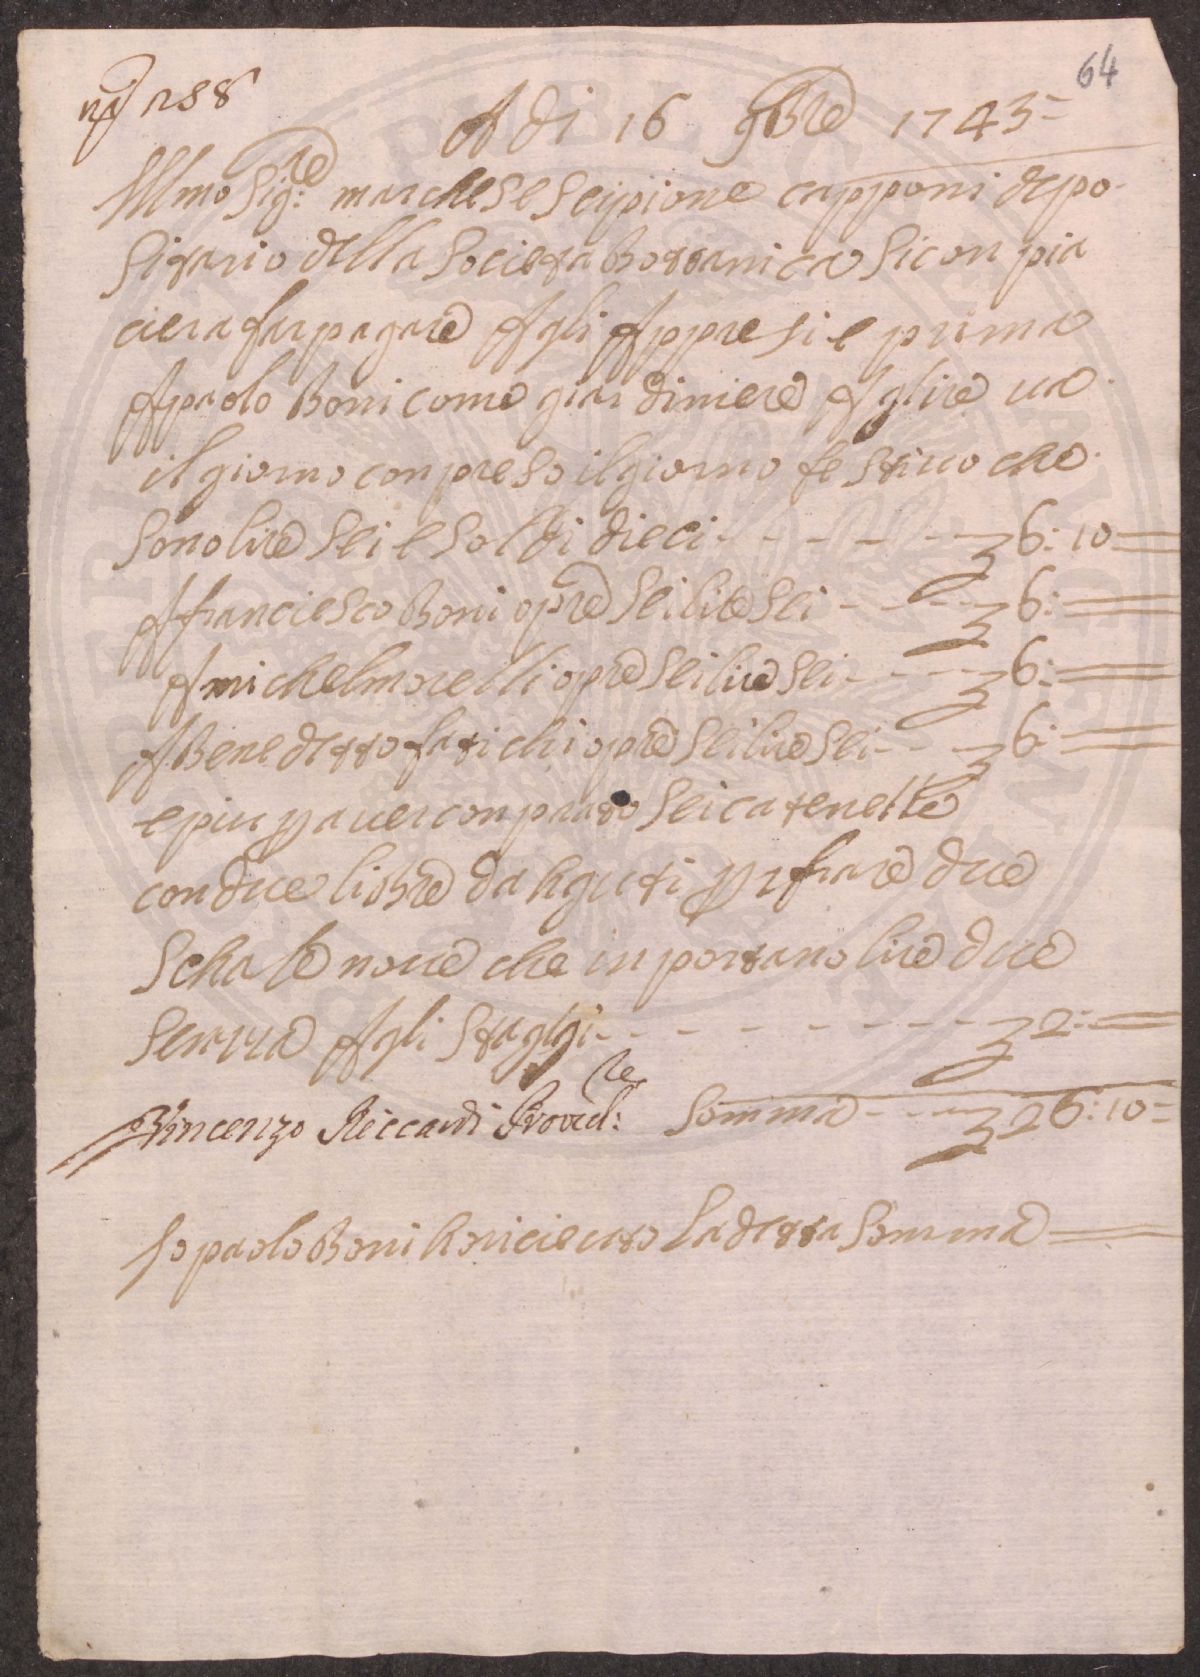 64
no 288
A di 16 9bre 1743
Illmo Sigre: marchese Scipione capponi depo
sitario della Societa Bottanica Si con pia
ciera far pagare Agli Appresi e prima
A paolo Boni come giardiniere A lire una
il giorno conpreso il giorno festivo che
Sono lire Sei e Soldi dieci - - - - - - 6: 10
A franciesco Boni opre Sei lire Sei - - - - 6:
A michel morelli opre Sei lire Sei - - - - 6:
A Benedetto fatichi opre Sei lire Sei - - - 6:
e piu p aver conprato Sei catenelle
con due libre da Aguti p rifare due
Schale nove che inportano lire due
Senza Agli Staggi - - - - - - - - 2:
Vincenzo Riccardi Provvedre: Somma - - - 26: 10
Io paolo Boni ho riceuto La detta Somma